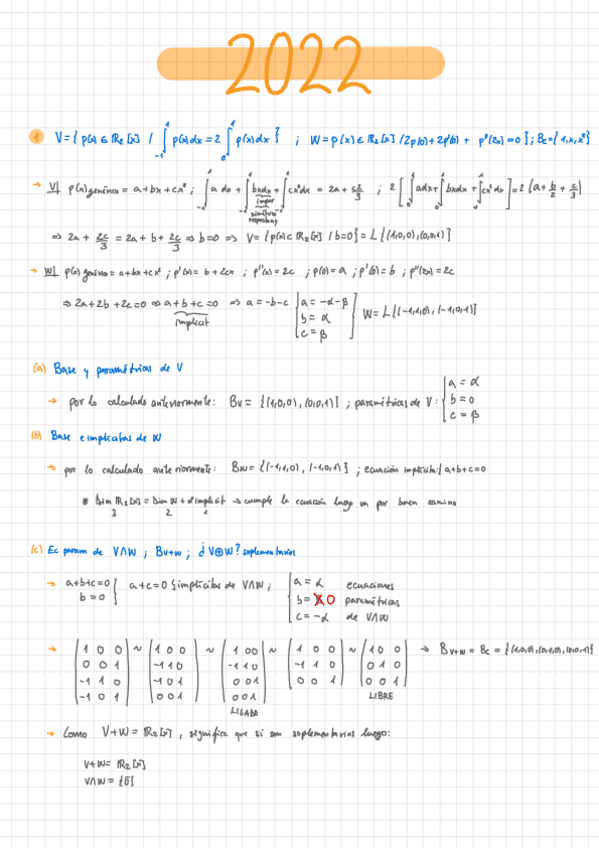 2022
1 V={p(x) ∈ ℝ₂[x] / ∫₋₁¹ p(x)dx = 2 ∫₀¹ p(x)dx } ; W = p(x) ∈ ℝ₂[x] / 2p(0) + 2p'(0) + p''(2x) = 0 } ; Bc = {1,x,x²}
→ V| p(x) genérico = a+bx+cx² ; ∫₋₁¹ a dx + ∫₋₁¹ bxdx + ∫₋₁¹ cx²dx = 2a + 2c/3 ; 2 [ ∫₀¹ adx + ∫₀¹ bxdx + ∫₀¹ cx²dx ] = 2 (a + b/2 + c/3)
impar
⇒ 2a + 2c/3 = 2a + b + 2c/3 ⇒ b=0 ⇒ V= {p(x) ∈ ℝ₂[x] / b=0} = L{(1,0,0), (0,0,1)}
→ W| p(x) genérico = a+bx+cx² ; p'(x) = b + 2cx ; p''(x) = 2c ; p(0) = a ; p'(0) = b ; p''(2x) = 2c
⇒ 2a + 2b + 2c = 0 ⇒ a+b+c = 0 ⇒ a = -b-c { a = -α-β
b = α
c = β } W = L{(-1,1,0), (-1,0,1)}
implícit
(a) Base y paramétricas de V
→ por lo calculado anteriormente: Bv = {(1,0,0), (0,0,1)} ; paramétricas de V: { a = α
b = 0
c = β
(b) Base e implícitas de W
→ por lo calculado anteriormente: Bw = {(-1,1,0), (-1,0,1)} ; ecuación implícita: {a+b+c=0
* Dim ℝ₂[x] = Dim W + # implícit → cumple la ecuación luego va por buen camino
3 2 1
(c) Ec param de V∩W ; Bv+w ; ¿ V⊕W? suplementarios
→ a+b+c=0
b = 0 } a+c=0 } implícitas de V∩W ; { a = α ecuaciones
b = 0 paramétricas
c = -α de V∩W
→ (1 0 0 / 0 0 1 / -1 1 0 / -1 0 1) ~ (1 0 0 / -1 1 0 / -1 0 1 / 0 0 1) ~ (1 0 0 / -1 1 0 / 0 0 1 / 0 0 1) ~ (1 0 0 / -1 1 0 / 0 0 1) ~ (1 0 0 / 0 1 0 / 0 0 1) → Bv+w = Bc = {(1,0,0), (0,1,0), (0,0,1)}
LIGADO LIBRE
→ Como V+W = ℝ₂[x], significa que si son suplementarios luego:
V+W= ℝ₂[x]
V∩W = {0̄}